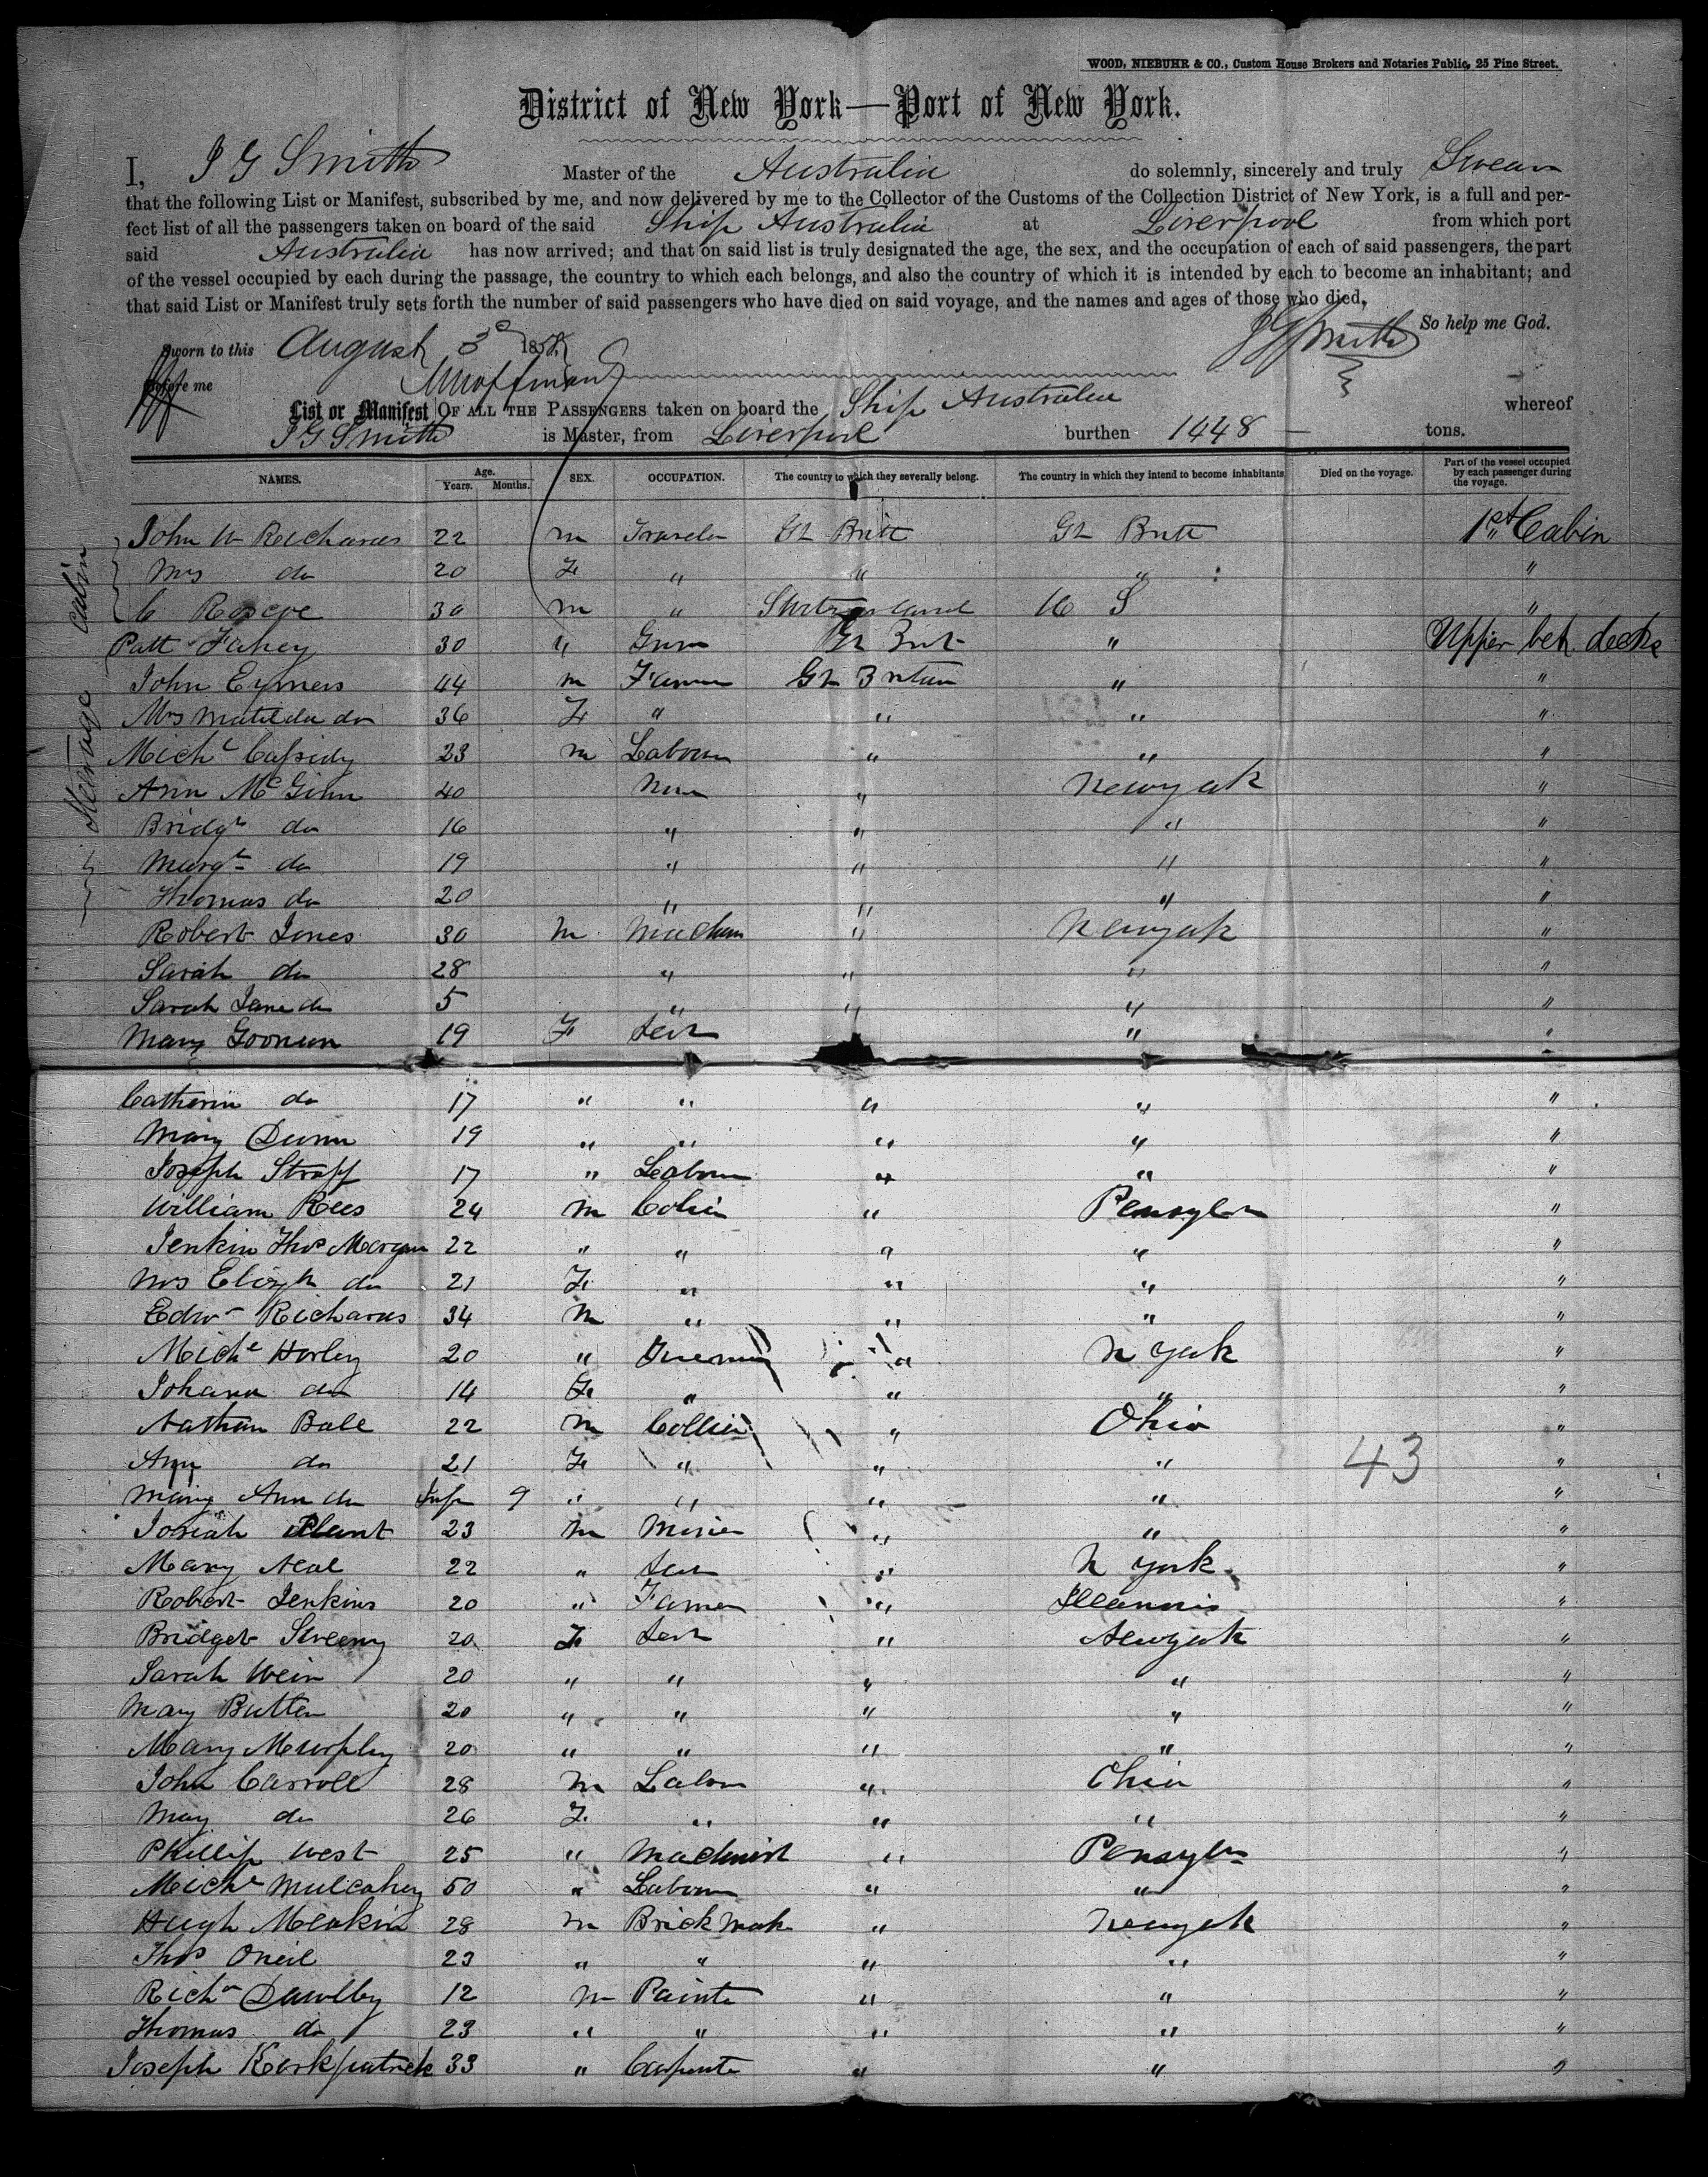 WOOD, NIEBUHR & CO., Custom House Brokers and Notaries Public, 25 Pine Street.
District of New York—Port of New York.
I, J G Smith Master of the Australia do solemnly, sincerely and truly Swear
that the following List or Manifest, subscribed by me, and now delivered by me to the Collector of the Customs of the Collection District of New York, is a full and per-
fect list of all the passengers taken on board of the said Ship Australia at Liverpool from which port
said Australia has now arrived; and that on said list is truly designated the age, the sex, and the occupation of each of said passengers, the part
of the vessel occupied by each during the passage, the country to which each belongs, and also the country of which it is intended by each to become an inhabitant; and
that said List or Manifest truly sets forth the number of said passengers who have died on said voyage, and the names and ages of those who died.
So help me God.
Sworn to this August 3 185
J G Smith
Before me
List or Manifest OF ALL THE PASSENGERS taken on board the Ship Australia whereof
J G Smith is Master, from Liverpool burthen 1448 tons.
NAMES. Age. Years. Months. SEX. OCCUPATION. The country to which they severally belong. The country in which they intend to become inhabitants Died on the voyage. Part of the vessel occupied by each passenger during the voyage.
Steerage Cabin
John W Richards 22 m Traveler Gt Britt Gt Britt 1st Cabin
Mrs do 20 F " " " "
C Roscoe 30 m " U S "
Patt Fahey 30 " Gt Brit " Upper bet. decks
John Eymers 44 m Farmer Gt Britain " "
Mrs Matilda do 36 F " " " "
Michl Cassidy 23 m Labourer " " "
Ann McGinn 40 " Newyork "
Bridgt do 16 " " " "
Margt do 19 " " " "
Thomas do 20 " " " "
Robert Jones 30 m " Newyork "
Sarah do 28 " " " "
Sarah Jane do 5 " " " "
Mary Goonun 19 F Sert " "
Catherin do 17 " " " " "
Mary Dunn 19 " " " " "
Joseph Straff 17 " Labour " " "
William Rees 24 m Colier " Pensyln "
Jenkin Thos Morgan 22 " " " " "
Mrs Elizh do 21 F " " " "
Edwd Richards 34 m " " " "
Michl Horley 20 " " N York "
Johana do 14 F " " " "
Nathan Ball 22 m Collier " Ohio "
Ann do 21 F " " " " 43
Mary Ann do Inft 9 " " " " "
Josiah Plant 23 m Miner " " "
Mary Neal 22 " Sert " N York "
Robert Jenkins 20 " Farmer " Illannis "
Bridget Sweeny 20 F Sert " Newyork "
Sarah Wein 20 " " " " "
Mary Butler 20 " " " " "
Mary Murphy 20 " " " " "
John Carroll 28 m Labour " Ohio "
May do 26 F " " " "
Phillip West 25 " Machinist " Pensyln "
Michl Mulcahey 50 " Labour " " "
Hugh Meakin 28 m Brick Mak " Newyork "
Thos Oneil 23 " " " " "
Richd Dawlby 12 m Painte " " "
Thomas do 23 " " " " "
Joseph Kerkpatrick 33 " Carpente " " "